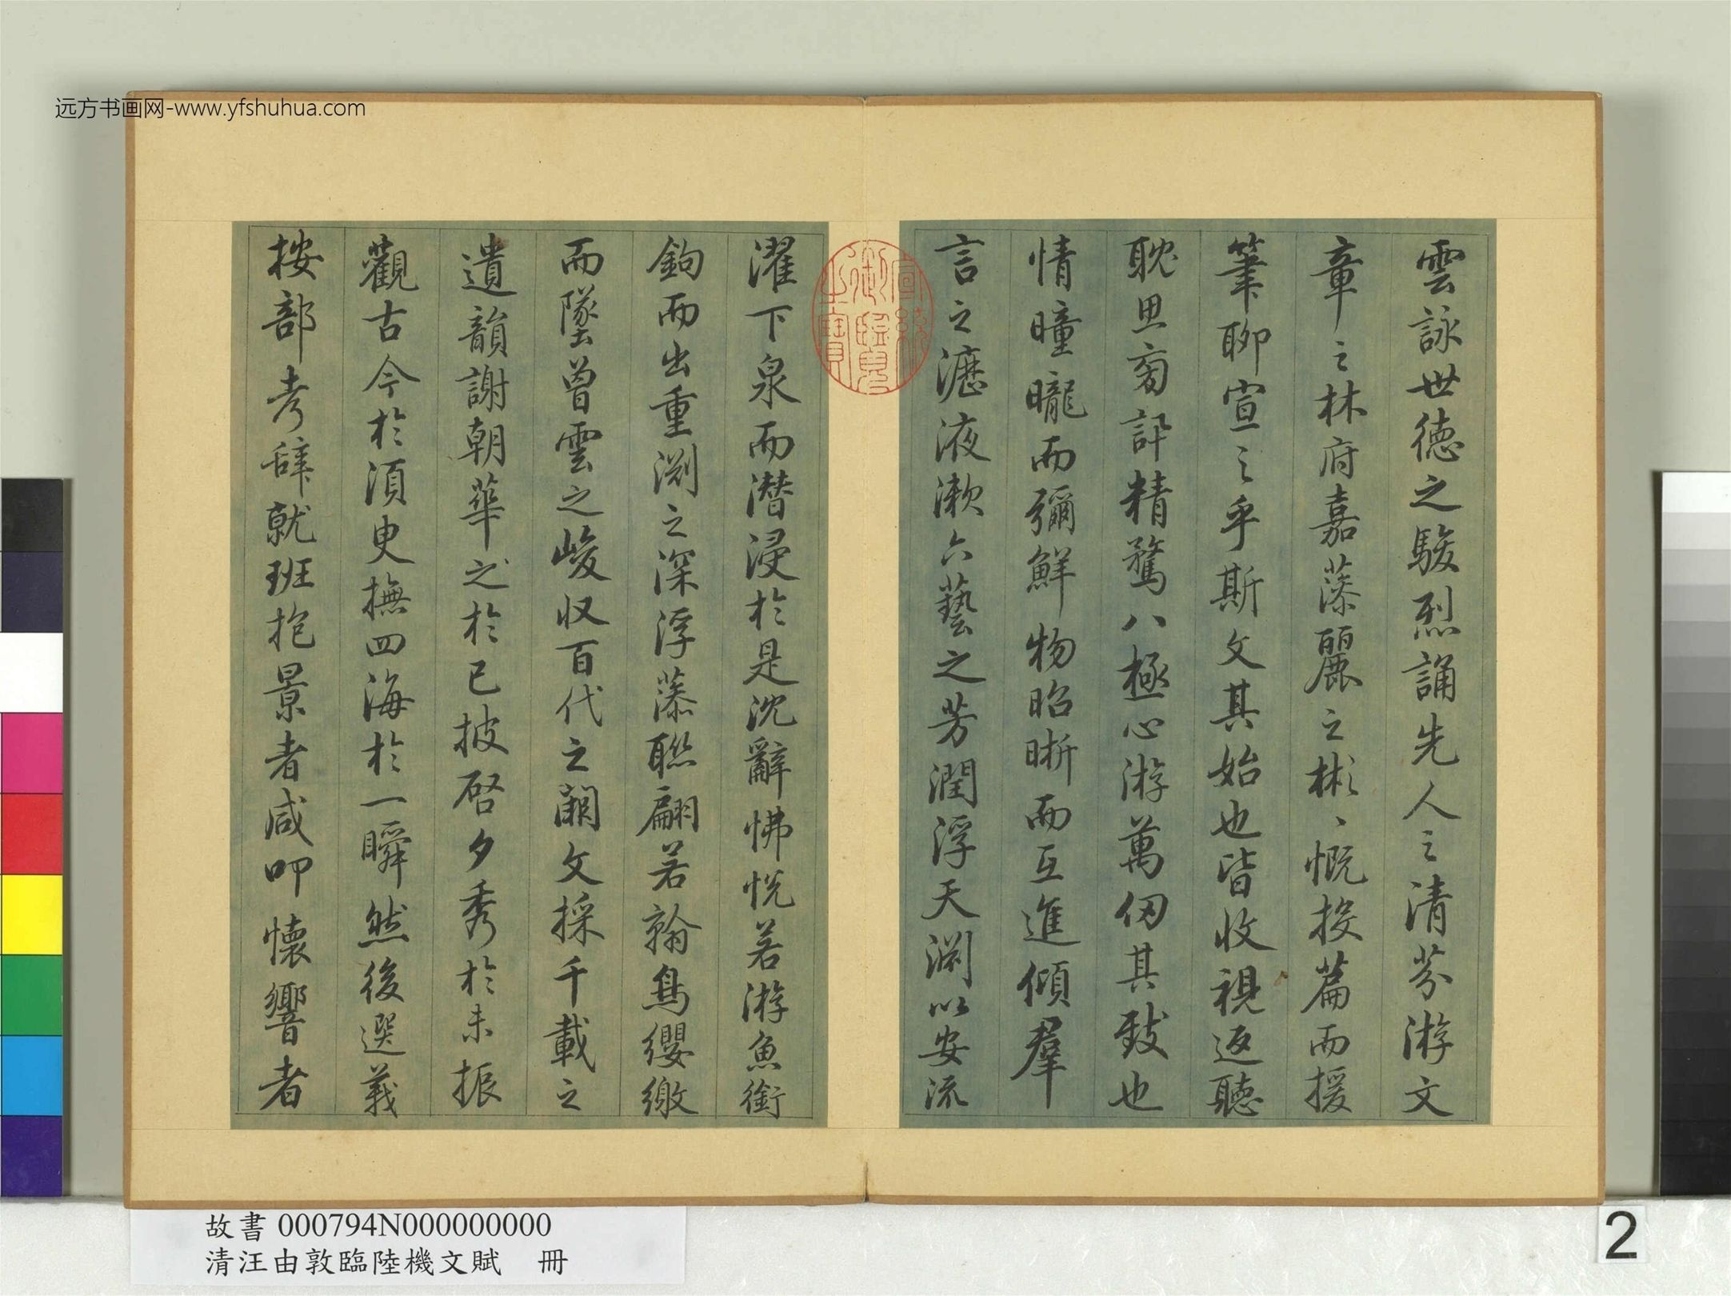 远方书画网-www.yfshuhua.com
雲詠世德之駿烈誦先人之清芬游文
章之林府嘉藻麗之彬〻慨投篇而援
筆聊宣之乎斯文其始也皆收視返聽
耽思旁訊精騖八極心游萬仞其致也
情曈曨而彌鮮物昭晰而互進傾群
言之瀝液漱六藝之芳潤浮天淵以安流
濯下泉而潛浸於是沈辭怫悅若游魚銜
鉤而出重淵之深浮藻聯翩若翰鳥纓繳
而墜曾雲之峻收百代之闕文採千載之
遺韻謝朝華之於已披啓夕秀於未振
觀古今於須臾撫四海於一瞬然後選義
按部考辭就班抱景者咸叩懷響者
宣統御覽之寶
故書 000794N000000000
清汪由敦臨陸機文賦 冊
2